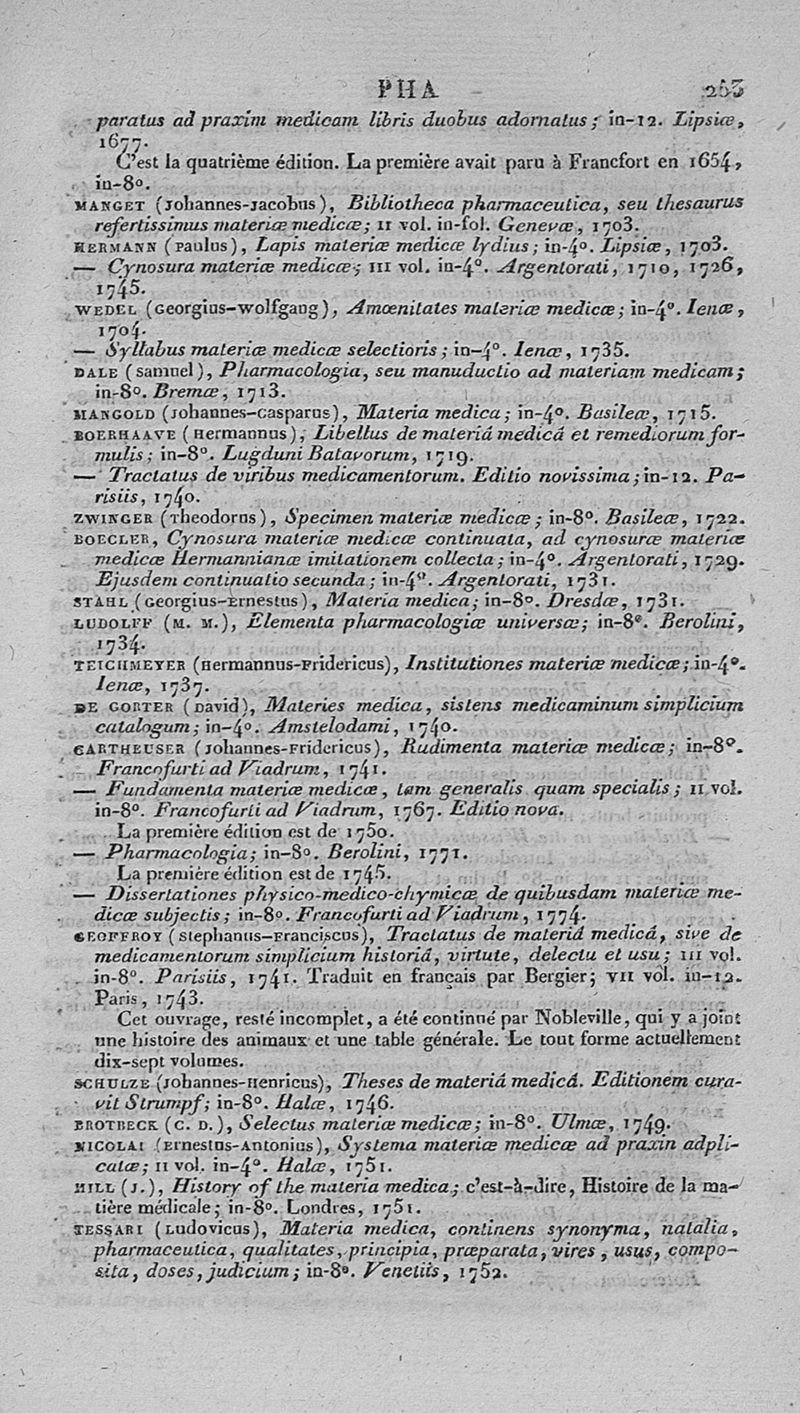 PHA 253
paratus ad praxim medicam libris duobus adornatus; in-12. Lipsiæ,
1677.
C'est la quatrième édition. La première avait paru à Francfort en 1654,
in-8o.
MANGET (Johannes-Jacobus), Bibliotheca pharmaceutica, seu thesaurus
refertissimus materiæ medicæ; II vol. in-fol. Genevæ, 1703.
HERMANN (Paulus), Lapis materiæ medicæ lydius; in-4o. Lipsiæ, 1703.
— Cynosura materiæ medicæ; III vol. in-4o. Argentorati, 1710, 1726,
1745.
WEDEL (Georgius-Wolfgang), Amœnitates materiæ medicæ; in-4o. Ienæ,
1704.
— Syllabus materiæ medicæ selectioris; in-4o. Ienæ, 1735.
DALE (Samuel), Pharmacologia, seu manuductio ad materiam medicam;
in-8o. Bremæ, 1713.
MANGOLD (Johannes-Casparus), Materia medica; in-4o. Basileæ, 1715.
BOERHAAVE (Hermannus), Libellus de materiá medicá et remediorum for-
mulis; in-8o. Lugduni Batavorum, 1719.
— Tractatus de viribus medicamentorum. Editio novissima; in-12. Pa-
risiis, 1740.
ZWINGER (Theodorus), Specimen materiæ medicæ; in-8o. Basileæ, 1722.
BOECLER, Cynosura materiæ medicæ continuata, ad cynosuræ materiæ
medicæ Hermannianæ imitationem collecta; in-4o. Argentorati, 1729.
Ejusdem continuatio secunda; in-4o. Argentorati, 1731.
STAHL (Georgius-Ernestus), Materia medica; in-8o. Dresdæ, 1731.
LUDOLFF (M. M.), Elementa pharmacologiæ universæ; in-8o. Berolini,
1734.
TEICHMEYER (Hermannus-Fridericus), Institutiones materiæ medicæ; in-4o.
Ienæ, 1737.
DE GORTER (David), Materies medica, sistens medicaminum simplicium
catalogum; in-4o. Amstelodami, 1740.
CARTHEUSER (Johannes-Fridericus), Rudimenta materiæ medicæ; in-8o.
Francofurti ad Viadrum, 1741.
— Fundamenta materiæ medicæ, tam generalis quam specialis; II vol.
in-8o. Francofurti ad Viadrum, 1767. Editio nova.
La première édition est de 1750.
— Pharmacologia; in-8o. Berolini, 1771.
La première édition est de 1745.
— Dissertationes physico-medico-chymicæ de quibusdam materiæ me-
dicæ subjectis; in-8o. Francofurti ad Viadrum, 1774.
GEOFFROY (Stephanus-Franciscus), Tractatus de materiá medicá, sive de
medicamentorum simplicium historiá, virtute, delectu et usu; III vol.
in-8o. Parisiis, 1741. Traduit en français par Bergier; VII vol. in-12.
Paris, 1743.
Cet ouvrage, resté incomplet, a été continué par Nobleville, qui y a joint
une histoire des animaux et une table générale. Le tout forme actuellement
dix-sept volumes.
SCHULZE (Johannes-Henricus), Theses de materiá medicá. Editionem cura-
vit Strumpf; in-8o. Halæ, 1746.
BROTBECK (C. D.), Selectus materiæ medicæ; in-8o. Ulmæ, 1749.
NICOLAI (Ernestus-Antonius), Systema materiæ medicæ ad praxin adpli-
catæ; II vol. in-4o. Halæ, 1751.
HILL (J.), History of the materia medica; c'est-à-dire, Histoire de la ma-
tière médicale; in-8o. Londres, 1751.
TESSARI (Ludovicus), Materia medica, continens synonyma, natalia,
pharmaceutica, qualitates, principia, præparata, vires, usus, compo-
sita, doses, judicium; in-8o. Venetiis, 1752.